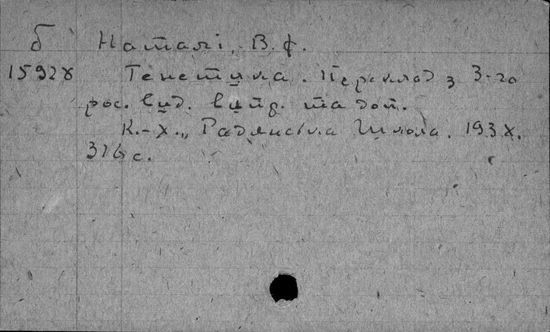 б Наталі, В. Ф.
15928 Генетика. Переклад з 3-го
рос. вид. випр. та доп.
К.-Х., Радянська школа. 193X.
316 с.